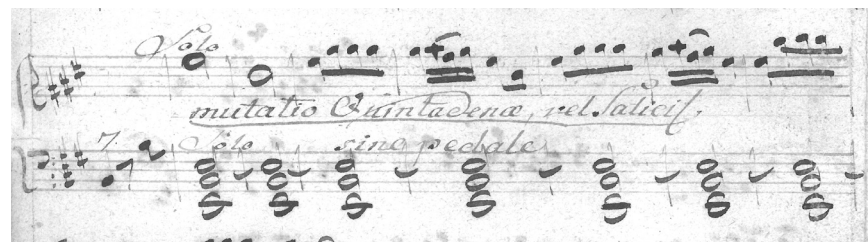 Solo
mutatio Quintadenæ, vel Salicis
7. Solo sine pedale